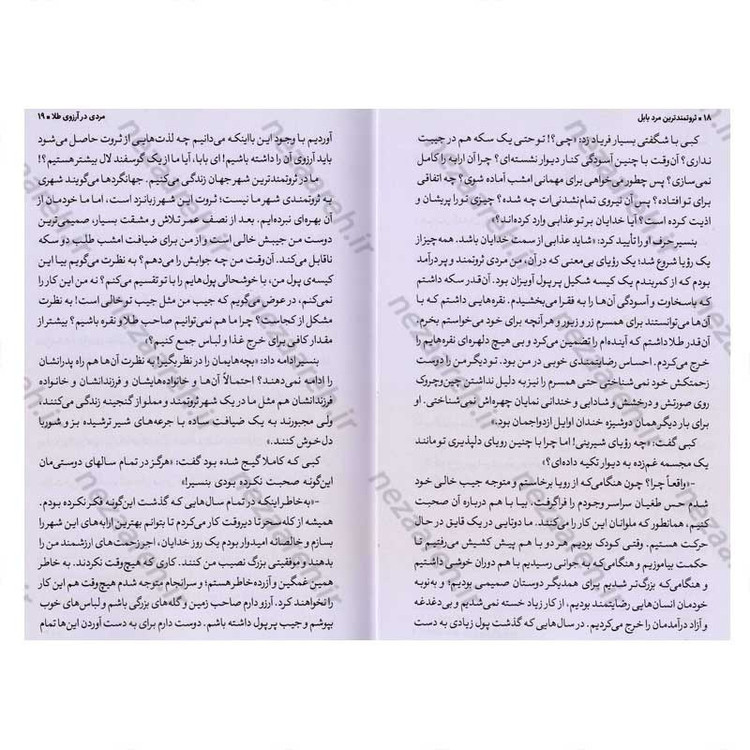 ۱۸ ■ ثروتمندترین مرد بابل
کبی با شگفتی بسیار فریاد زد: «چی؟! تو حتی یک سکه هم در جیبت
نداری؟ آن‌وقت با چنین آسودگی کنار دیوار نشسته‌ای؟ چرا آن ارابه را کامل
نمی‌سازی؟ پس چطور می‌خواهی برای مهمانی امشب آماده شوی؟ چه اتفاقی
برای تو افتاده؟ پس آن نیروی تمام‌نشدنی‌ات چه شده؟ چیزی تو را پریشان و
اذیت کرده است؟ آیا خدایان بر تو عذابی وارد کرده‌اند؟»
بنسیر حرف او را تأیید کرد: «شاید عذابی از سمت خدایان باشد. همه‌چیز از
یک رؤیا شروع شد؛ یک رؤیای بی‌معنی که در آن، من مردی ثروتمند و پردرآمد
بودم که از کمربندم یک کیسه شکیل پر پول آویزان بود. آن‌قدر سکه داشتم
که باسخاوت و آسودگی آن‌ها را به فقرا می‌بخشیدم. نقره‌هایی داشتم که با
آن‌ها می‌توانستند برای همسرم زر و زیور و هر آنچه برای خود می‌خواستم بخرم.
آن‌قدر طلا داشتم که آینده‌ام را تضمین می‌کرد و بی هیچ دلهره‌ای نقره‌هایم را
خرج می‌کردم. احساس رضایتمندی خوبی در من بود. تو دیگر من را دوست
زحمتکش خود نمی‌شناختی حتی همسرم را نیز به دلیل نداشتن چین‌وچروک
روی صورتش و درخشش و شادابی و خندانی نمایان چهره‌اش نمی‌شناختی. او
برای بار دیگر همان دوشیزه خندان اوایل ازدواجمان بود.»
کبی گفت: «چه رؤیای شیرینی! اما چرا با چنین رویای دلپذیری تو مانند
یک مجسمه غم‌زده به دیوار تکیه داده‌ای؟»
-«واقعاً چرا؟ چون هنگامی‌که از رویا برخاستم و متوجه جیب خالی خود
شدم حس طغیان سراسر وجودم را فراگرفت. بیا با هم درباره آن صحبت
کنیم، همانطور که ملوانان این کار را می‌کنند. ما دوتایی در یک قایق در حال
حرکت هستیم. وقتی کودک بودیم هر دو با هم پیش کشیش می‌رفتیم تا
حکمت بیاموزیم و هنگامی‌که به جوانی رسیدیم با هم دوران خوشی داشتیم
و هنگامی‌که بزرگ‌تر شدیم برای همدیگر دوستان صمیمی بودیم؛ و به‌نوبه
خودمان انسان‌هایی رضایتمند بودیم، از کار زیاد خسته نمی‌شدیم و بی‌دغدغه
و آزاد درآمدمان را خرج می‌کردیم. در سال‌هایی که گذشت پول زیادی به دست
مردی در آرزوی طلا ■ ۱۹
آوردیم با وجود این بااینکه می‌دانیم چه لذت‌هایی از ثروت حاصل می‌شود
باید آرزوی آن را داشته باشیم! ای بابا، آیا ما از یک گوسفند لال بیشتر هستیم؟!
ما در ثروتمندترین شهر جهان زندگی می‌کنیم. جهانگردها می‌گویند شهری
به ثروتمندی شهر ما نیست؛ ثروت این شهر زبانزد است، اما ما خودمان از
آن بهره‌ای نبرده‌ایم. بعد از نصف عمر تلاش و مشقت بسیار، صمیمی‌ترین
دوست من جیبش خالی است و از من برای ضیافت امشب طلب دو سکه
ناقابل می‌کند. آن وقت من چه جوابش را می‌دهم؟ به نظرت می‌گویم بیا این
کیسه‌ی پول من، با خوشحالی پول‌هایم را با تو تقسیم می‌کنم؟ نه من این کار را
نمی‌کنم، در عوض می‌گویم که جیب من مثل جیب تو خالی است! به نظرت
مشکل از کجاست؟ چرا ما هم نمی‌توانیم صاحب طلا و نقره باشیم؟ بیشتر از
مقدار کافی برای خرج غذا و لباس جمع کنیم؟
بنسیر ادامه داد: «بچه‌هایمان را در نظر بگیر! به نظرت آن‌ها هم راه پدرانشان
را ادامه نمی‌دهند؟ احتمالاً آن‌ها و خانواده‌هایشان و فرزندانشان و خانواده
فرزندانشان هم مثل ما در یک شهر ثروتمند و مملو از گنجینه زندگی می‌کنند،
ولی مجبورند به یک ضیافت ساده با جرعه‌های شیر ترشیده بز و شوربا
دل‌خوش کنند.»
کبی که کاملا گیج شده بود گفت: «هرگز در تمام سالهای دوستی‌مان
این‌گونه صحبت نکرده بودی بنسیر!»
-«به‌خاطر اینکه در تمام سال‌هایی که گذشت این‌گونه فکر نکرده بودم.
همیشه از کله سحر تا دیروقت کار می‌کردم تا بتوانم بهترین ارابه‌های این شهر را
بسازم و خالصانه امیدوار بودم یک روز خدایان، اجر زحمت‌های ارزشمند من را
بدهند و موفقیتی بزرگ نصیب من کنند. کاری که هیچ‌وقت نکردند. به خاطر
همین غمگین و آزرده خاطر هستم؛ و سرانجام متوجه شدم هیچ‌وقت هم این کار
را نخواهند کرد. آرزو دارم صاحب زمین و گله‌های بزرگی باشم و لباس‌های خوب
بپوشم و جیب پر پول داشته باشم. دوست دارم برای به دست آوردن این‌ها تمام
nezaareh.ir